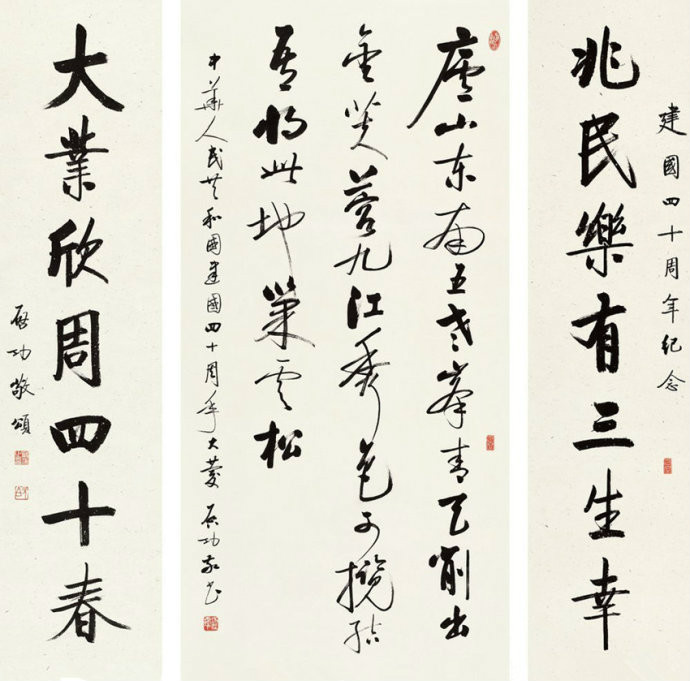 建國四十周年紀念
兆民樂有三生幸
廬山东南五老峯青天削出
金芙蓉九江秀色可攬結
吾将此地巢雲松
中華人民共和國建國四十周年大慶 启功敬書
大業欣周四十春
启功敬頌